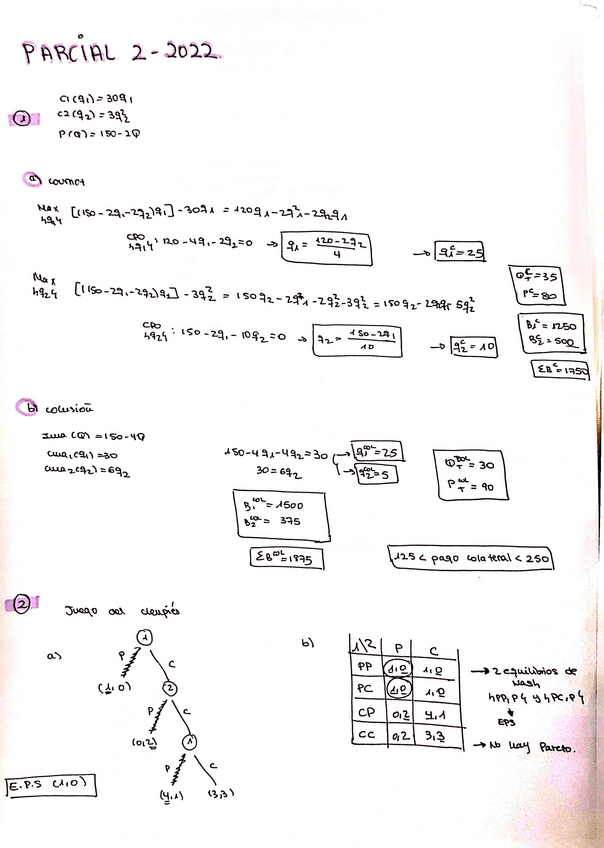 PARCIAL 2 - 2022
1
C1(q1) = 30q1
C2(q2) = 3q2²
P(Q) = 150-2Q
a) cournot
Max {q1} [(150-2q1-2q2)q1] - 30q1 = 120q1-2q1²-2q2q1
CPO {q1}: 120-4q1-2q2=0 → q1 = (120-2q2)/4 → q1ᶜ = 25
Max {q2} [(150-2q1-2q2)q2] - 3q2² = 150q2-2q2q1-2q2²-3q2² = 150q2-2q2q1-5q2²
CPO {q2}: 150-2q1-10q2=0 → q2 = (150-2q1)/10 → q2ᶜ = 10
QTᶜ = 35
Pᶜ = 80
B1ᶜ = 1250
B2ᶜ = 500
ΣBᶜ = 1750
b) colusión
Ima(Q) = 150-4Q
cma1(q1) = 30
cma2(q2) = 6q2
150-4q1-4q2 = 30 → q1ᶜᵒᴸ = 25
30 = 6q2 → q2ᶜᵒᴸ = 5
QTᶜᵒᴸ = 30
PTᶜᵒᴸ = 90
B1ᶜᵒᴸ = 1500
B2ᶜᵒᴸ = 375
ΣBᶜᵒᴸ = 1875
125 < pago colateral < 250
2 Juego del ciempiés
a)
1
P C
(1,0) 2
P C
(0,2) 1
P C
(4,1) (3,3)
E.P.S (1,0)
b)
1\2 P C
PP 1,0 1,0
PC 1,0 1,0
CP 0,2 4,1
CC 0,2 3,3
→ 2 equilibrios de
Nash
{PP,P} y {PC,P}
↓
EPS
→ No hay Pareto.